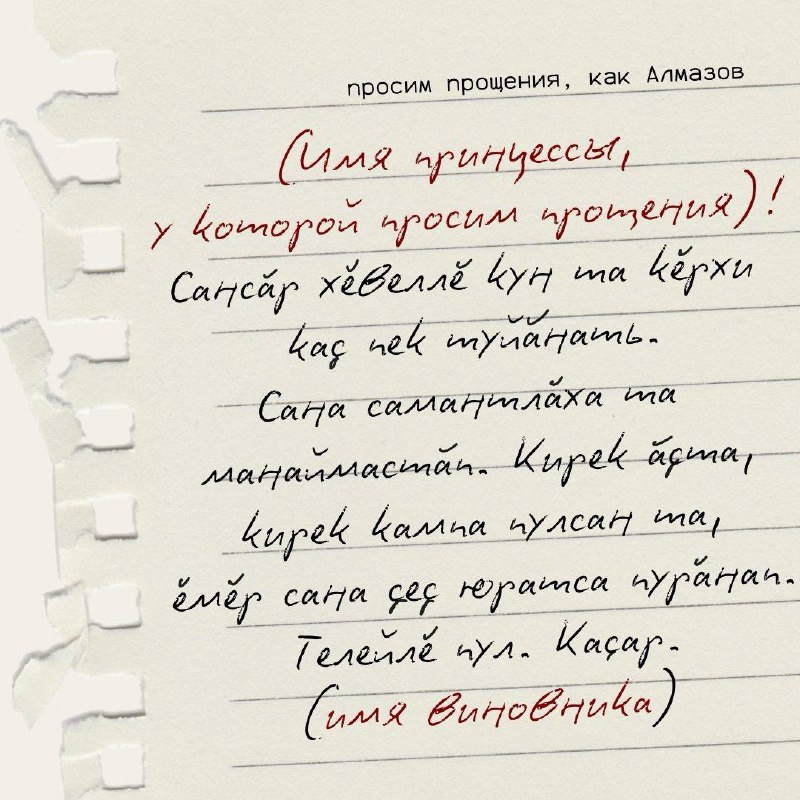 просим прощения, как Алмазов
(Имя принцессы,
у которой просим прощения)!
Сансӑр хӗвеллӗ кун та кӗрхи
каҫ пек туйӑнать.
Сана самантлӑха та
манаймастӑп. Кирек ӑҫта,
кирек кампа пулсан та,
ӗмӗр сана ҫеҫ юратса пурӑнап.
Телейлӗ пул. Каҫар.
(имя виновника)